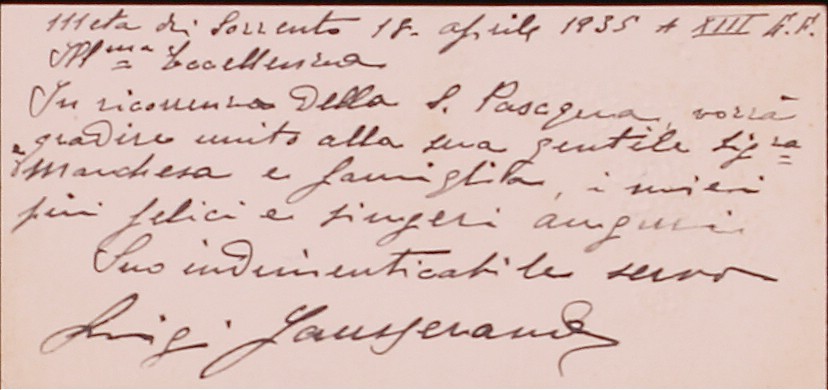 Meta di Sorrento 18. aprile 1935 A XIII E.F.
Ill.ma Eccellenza
In ricorrenza della S. Pasagua, vorrà
gradire unito alla sua gentile sig.ra
Marchesa e famiglila, i miei
più felici e singeri auguri
Suo indimenticabile servo
Luigi